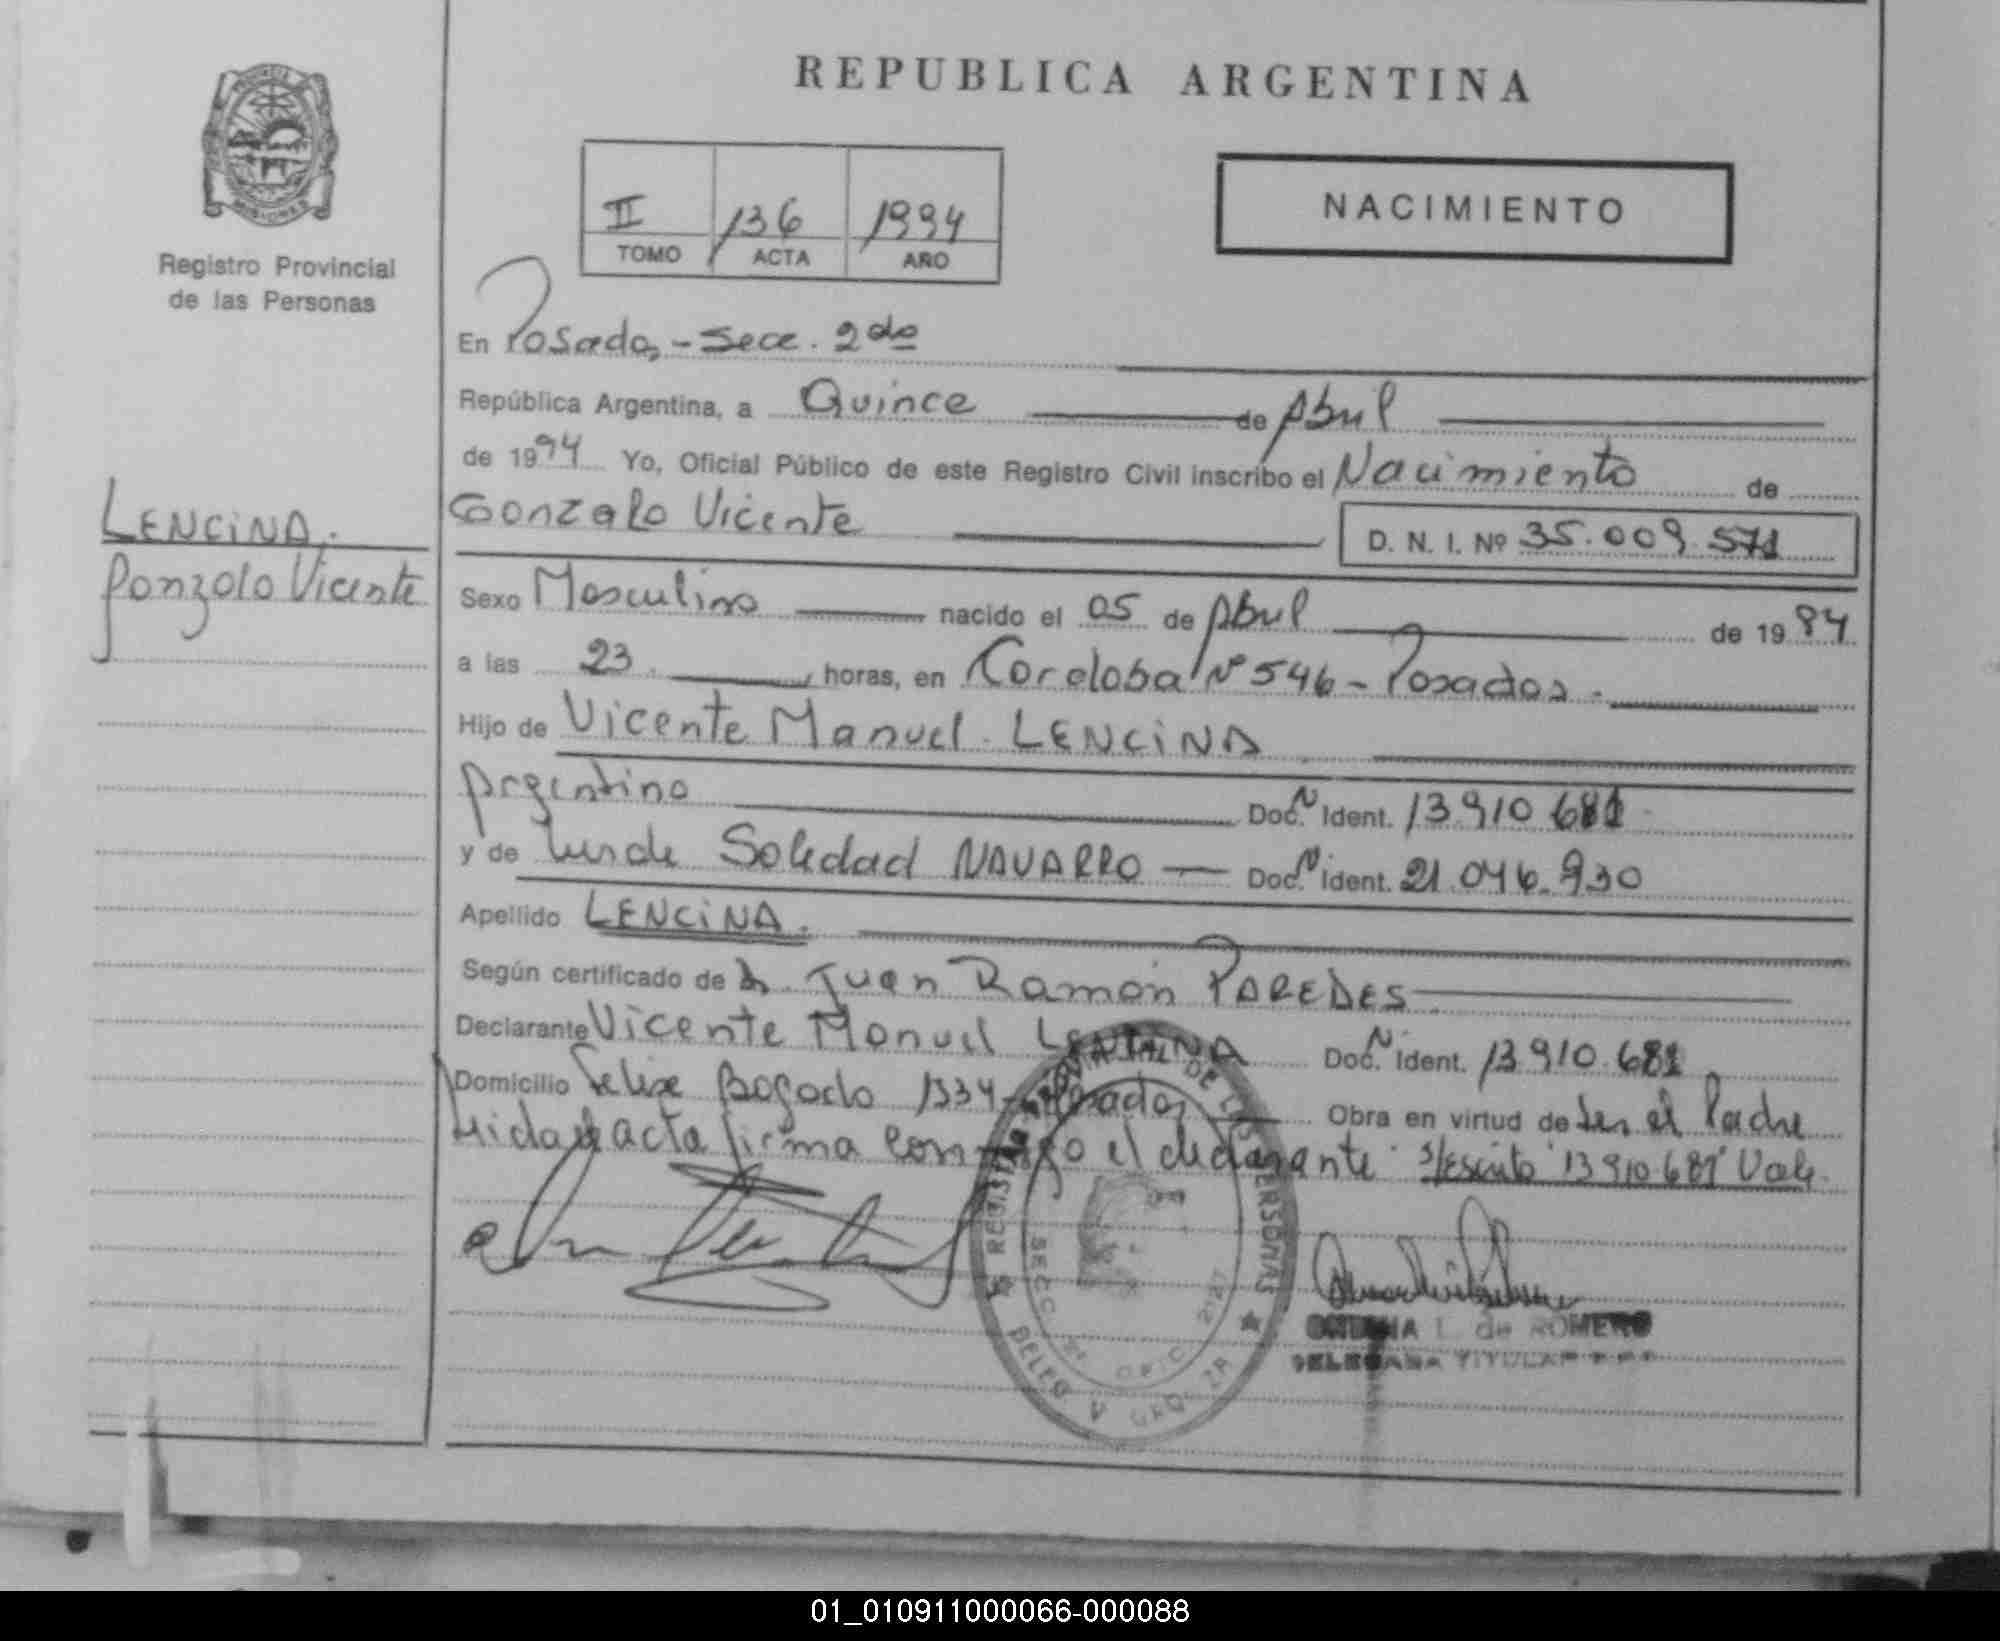 REPUBLICA ARGENTINA
PROVINCIA
MISIONES
Registro Provincial
de las Personas
II 136 1994
TOMO ACTA AÑO
NACIMIENTO
En Posadas - Secc. 2da
República Argentina, a Quince de Abril
de 1994 Yo, Oficial Público de este Registro Civil inscribo el Nacimiento de
Gonzalo Vicente D. N. I. Nº 35.009.571
LENCINA.
Gonzalo Vicente
Sexo Masculino nacido el 05 de Abril de 1994
a las 23 horas, en Cordoba Nº 546 - Posadas.
Hijo de Vicente Manuel LENCINA
Argentino Doc. N Ident. 13.910.681
y de Soledad NAVARRO — Doc. N Ident. 21.046.930
Apellido LENCINA.
Según certificado de Juan Ramón PAREDES
Declarante Vicente Manuel LENCINA Doc. N Ident. 13.910.681
Domicilio Felix Bogado 1334 - Posadas Obra en virtud de Ser el Padre
Leida el acta firma conmigo el declarante S/escrito "13.910.681" Vale.
REGISTRO PROVINCIAL DE LAS PERSONAS
SECC. OFIC. 2127
DELEG. URQUIZA
L. de ROMERO
DELEGADA TITULAR
01_010911000066-000088